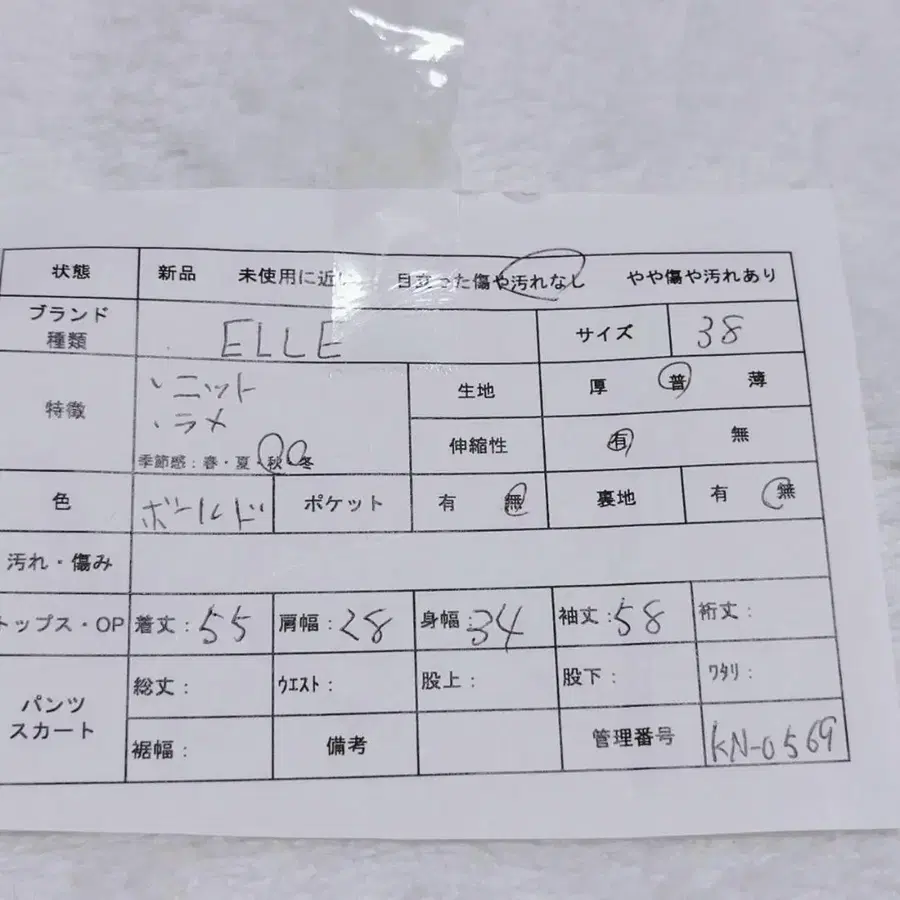 状態 新品 未使用に近い 目立った傷や汚れなし やや傷や汚れあり
ブランド
種類 ELLE サイズ 38
特徴 ・ニット
・ラメ
季節感：春・夏・秋・冬
生地 厚 普 薄
伸縮性 有 無
色 ボールド ポケット 有 無 裏地 有 無
汚れ・傷み
トップス・OP 着丈：55 肩幅：28 身幅：34 袖丈：58 裄丈：
パンツ
スカート
総丈： ｳｴｽﾄ： 股上： 股下： ﾜﾀﾘ：
裾幅： 備考 管理番号 KN-0569